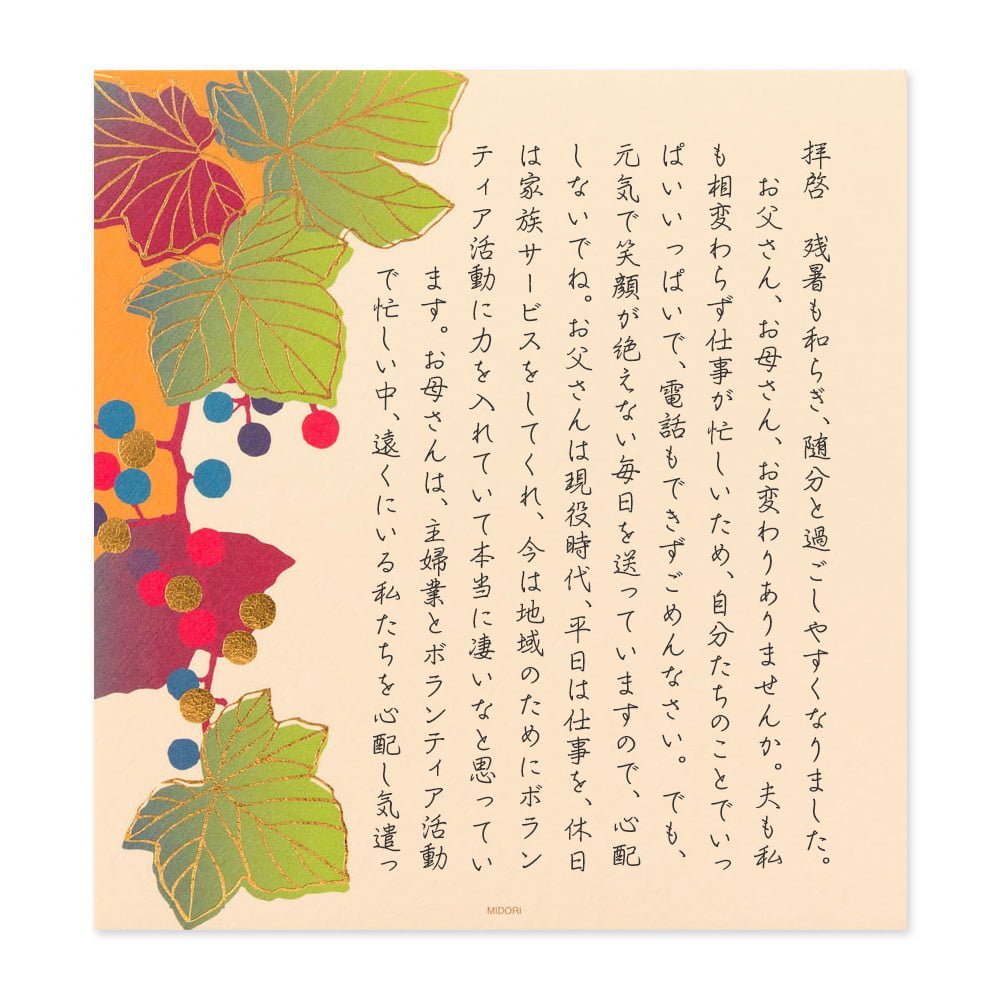 拝啓　残暑も和らぎ、随分と過ごしやすくなりました。
お父さん、お母さん、お変わりありませんか。夫も私
も相変わらず仕事が忙しいため、自分たちのことでいっ
ぱいいっぱいで、電話もできずごめんなさい。でも、
元気で笑顔が絶えない毎日を送っていますので、心配
しないでね。お父さんは現役時代、平日は仕事を、休日
は家族サービスをしてくれ、今は地域のためにボラン
ティア活動に力を入れていて本当に凄いなと思ってい
ます。お母さんは、主婦業とボランティア活動
で忙しい中、遠くにいる私たちを心配し気遣っ
MiDORi